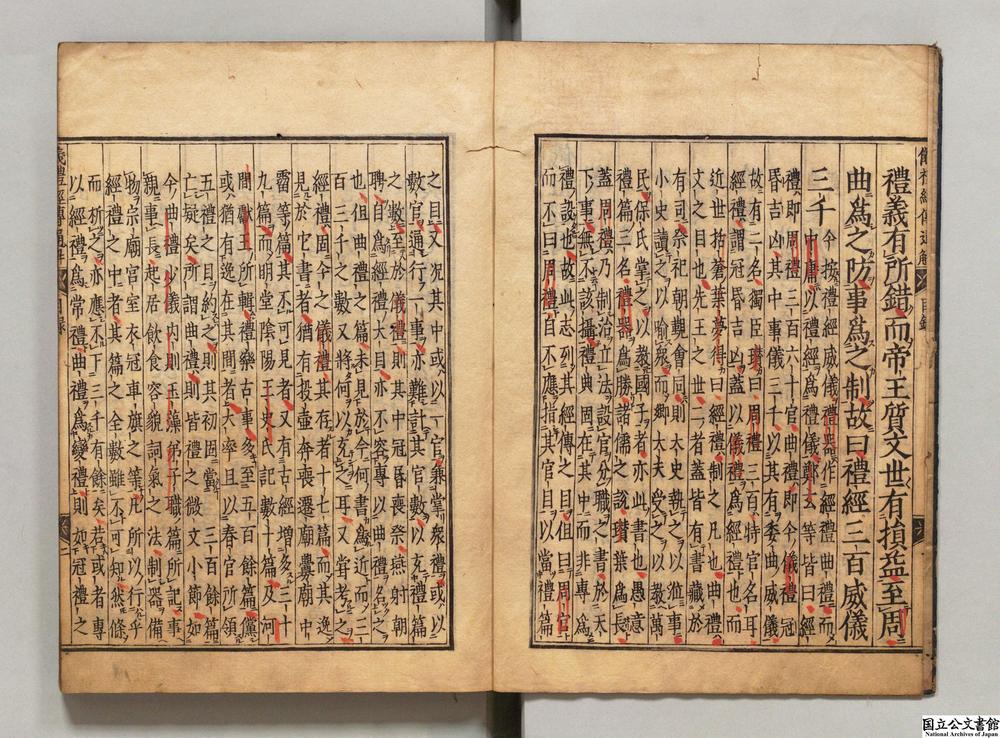 禮義有所錯而帝王質文世有損益至周
曲為之防事為之制故曰禮經三百威儀
三千
今按禮經威儀禮器作經禮曲禮而
中庸以禮經為禮儀鄭玄等皆曰經
禮即周禮三百六十官曲禮即今儀禮冠
昏吉凶其中事儀三千以其有委曲威儀
故有二名獨臣瓚曰周禮三百特官名耳
經禮謂冠昏吉凶蓋以儀禮為經禮也而
近世括蒼葉夢得曰經禮制之凡也曲禮
文之目也先王之世二者蓋皆有書藏於
有司祭祀朝覲會同則大史執之以涖事
小史讀之以喻眾而鄉大夫受之以教萬
民保氏掌之以教國子者亦此書也愚意
禮篇三名禮器為勝諸儒之說瓚葉為長
蓋周禮乃制治立法設官分職之書於天
下事無不該攝禮典固在其中而非專為
禮設也故此志列其經傳之目但曰周官
而不曰周禮自不應指其官目以當禮篇
之目又況其中或以一官兼掌眾禮或以
數官通行一事亦難計其官數以充禮篇
之數至於儀禮則其中冠昏喪祭燕射朝
聘自為經禮大目亦不容專以曲禮名之
也但曲禮之篇未見於今何書為近而三
百三千之數又將何以充之耳又嘗考之
經禮固今之儀禮其存者十七篇而其逸
見於它書者猶有投壺奔喪遷廟釁廟中
霤等篇其不可見者又有古經增多三十
九篇而明堂陰陽王史氏記數十篇及河
間獻王所輯禮樂古事多至五百餘篇儻
或猶有逸在其間者大率且以春官所領
五禮之目約之則其初固當有三百餘篇
亡疑矣所謂曲禮則皆禮之微文小節如
今曲禮少儀內則玉藻弟子職篇所記事
親事長起居飲食容貌詞氣之法制器備
物宗廟宮室衣冠車旗之等凡所以行乎
經禮之中者其篇之全數雖不可知然條
而析之亦應不下三千有餘矣若或者專
以經禮為常禮曲禮為變禮則如冠禮之
儀禮經傳通解 目錄 二
国立公文書館
National Archives of Japan